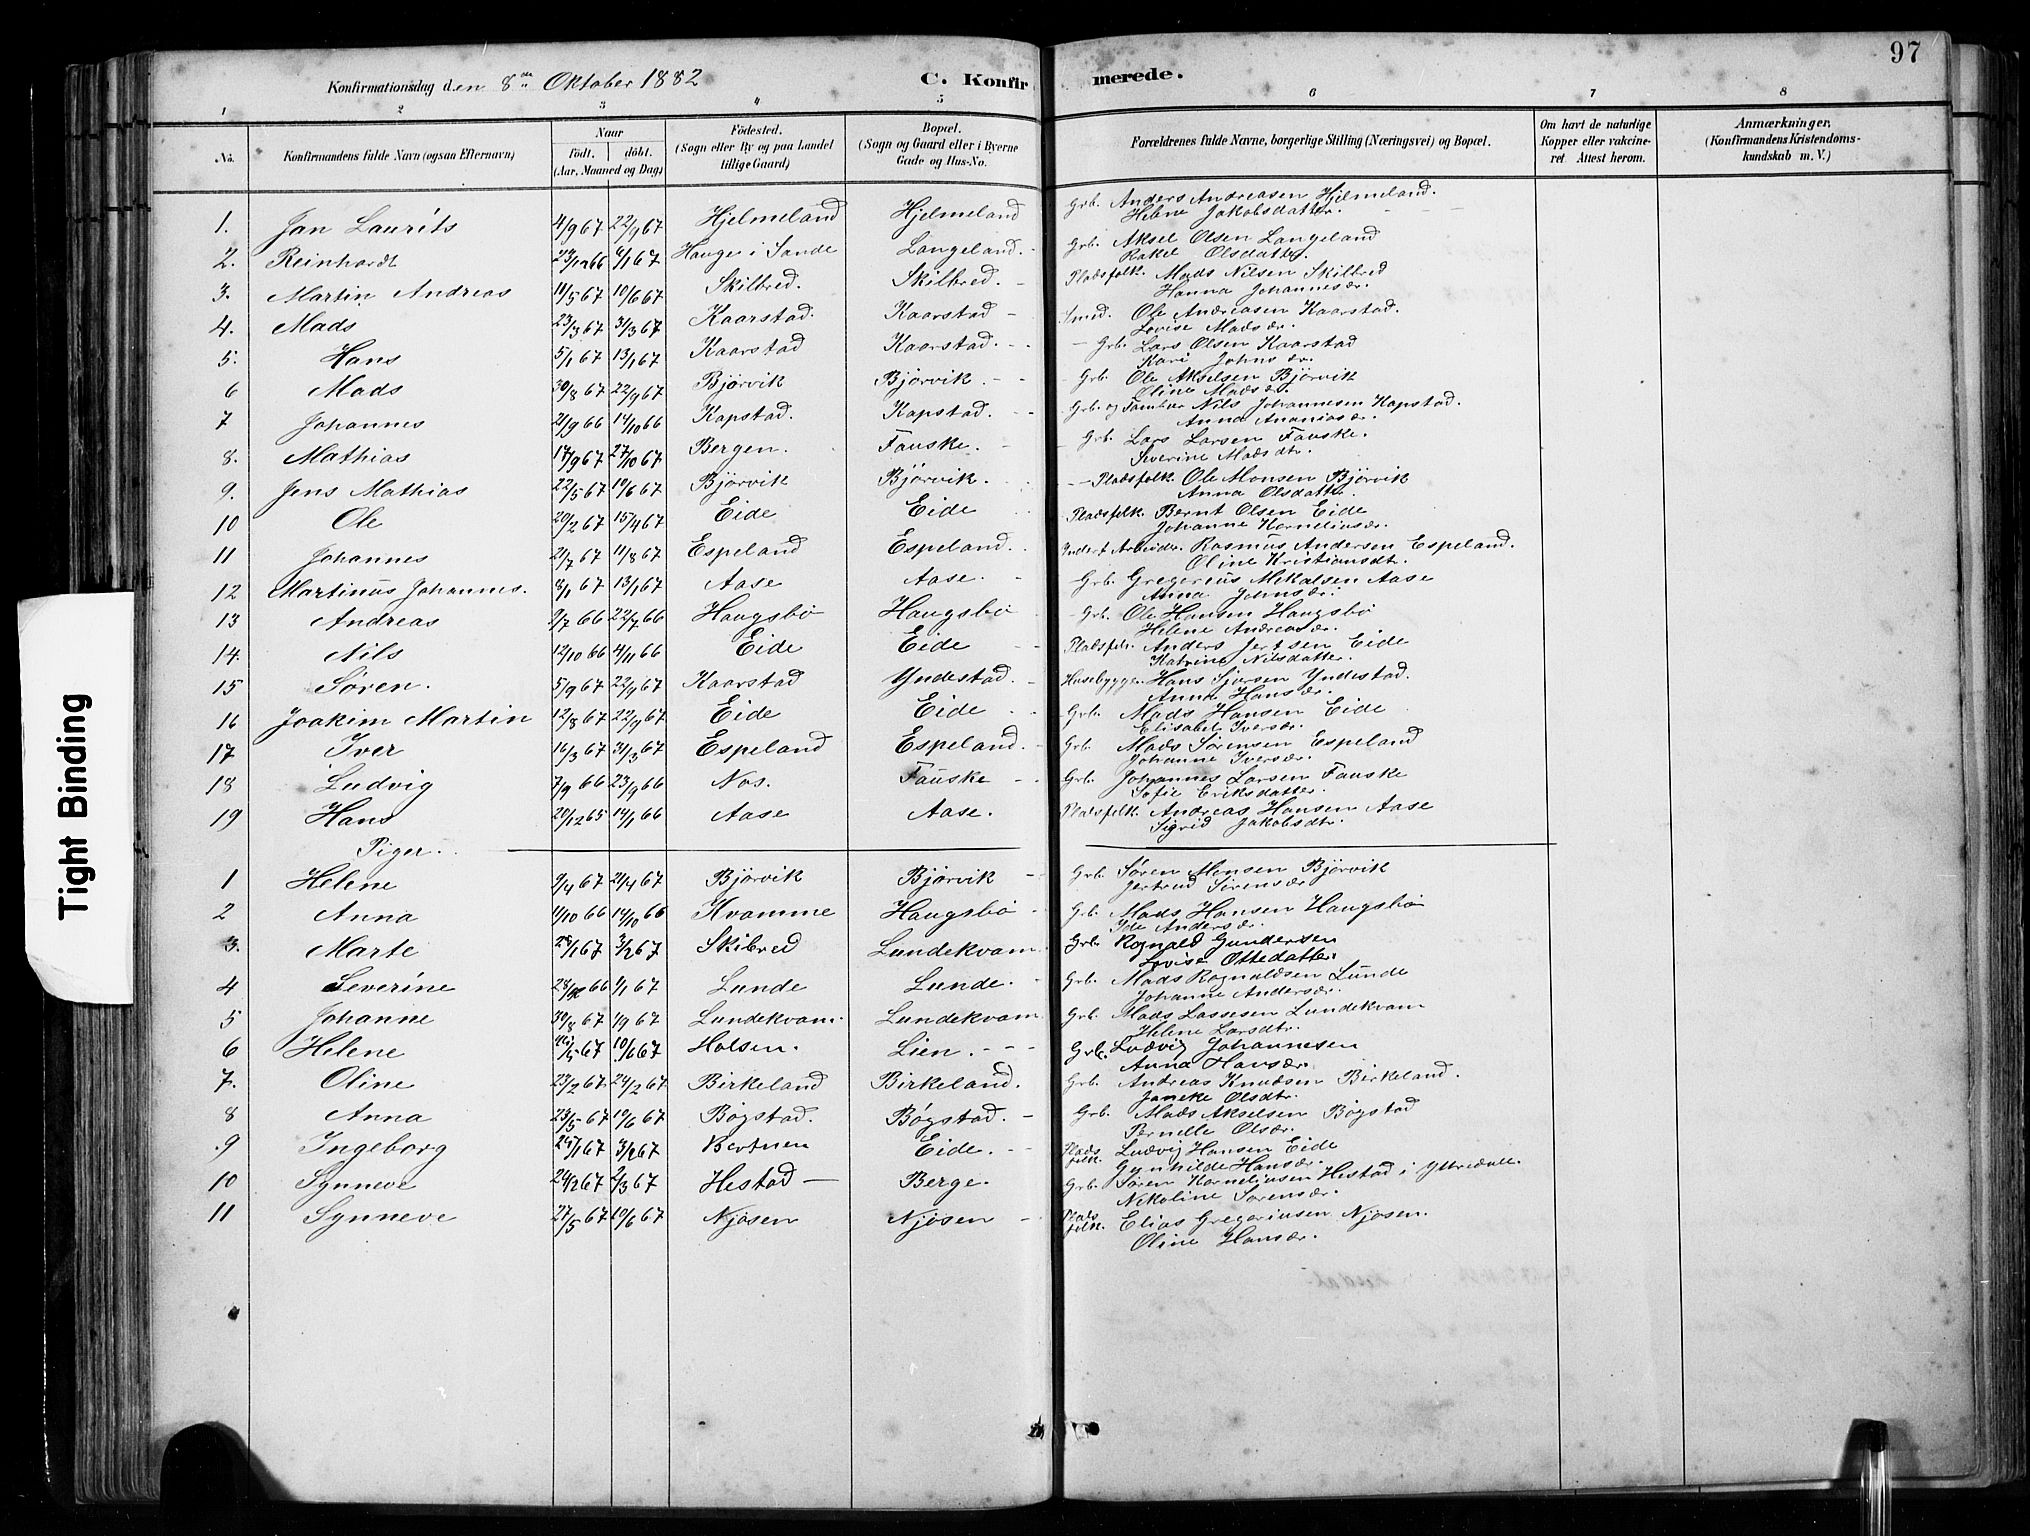 97
Konfirmationsdag den 8de Oktober 1882 C. Konfirmerede.
1 2 3 4 5 6 7 8
No. Konfirmandens fulde Navn (ogsaa Efternavn) Naar födt. döbt. (Aar, Maaned og Dag) Födested. (Sogn eller By og paa Landet tillige Gaard) Bopæl. (Sogn og Gaard eller i Byerne Gade og Hus-No. Forældrenes fulde Navne, borgerlige Stilling (Næringsvei) og Bopæl. Om havt de naturlige Kopper eller vakcineret. Attest herom. Anmærkninger. (Konfirmandens Kristendomskundskab m. V.)
1. Jan Laurits 4/9 67 22/9 67 Hjelmeland Hjelmeland Grb. Anders Andreasen Hjelmeland.
Helene Jakobsdatter.
2. Reinhardt 23/12 66 6/1 67 Hauge i Sande Langeland. Grb. Aksel Olsen Langeland
Rakel Olsdatter.
3. Martin Andreas 11/5 67 10/6 67 Skilbred. Skilbred. Pladsfolk. Mads Nilsen Skilbred
Hanna Johannesdr.
4. Mads 23/3 67 31/3 67 Kaarstad. Kaarstad Smed. Ole Andreasen Kaarstad.
Lovise Madsdr.
5. Hans 5/1 67 13/1 67 Kaarstad Kaarstad. Grb. Lars Olsen Kaarstad
Kari Johnsdr.
6 Mads 30/8 67 22/9 67 Bjørvik Bjørvik. Grb. Ole Akselsen Bjørvik
Oline Madsdr.
7 Johannes 21/9 66 14/10 66 Kapstad. Kapstad. Grb. og Nils Johannesen Kapstad.
Anna Ananiasdr.
8. Mathias 17/9 67 27/10 67 Bergen. Fauske. Grb. Lars Larsen Fauske.
Severine Madsdtr.
9. Jens Mathias 22/5 67 10/6 67 Bjørvik Bjørvik. Pladsfolk. Ole Monsen Bjørvik
Anna Olsdatter.
10 Ole 20/2 67 15/4 67 Eide Eide Pladsfolk. Bernt Olsen Eide
Johanne Korneliusdr.
11 Johannes 21/7 67 11/8 67 Espeland Espeland. Inderst Arbeider. Rasmus Andersen Espeland.
Oline Kristiansdtr.
12 Martinus Johannes. 8/1 67 13/1 67 Aase Aase. Grb. Gregerius Mikalsen Aase
Anna Johnsdr.
13 Andreas 9/7 66 22/7 66 Haugsbø Haugsbø Grb. Ole Hansen Haugsbø
Helene Andreasdr.
14. Nils 12/10 66 4/11 66 Eide Eide Pladsfolk. Anders Jertsen Eide
Katrine Nilsdatter.
15 Søren. 5/9 67 22/9 67 Kaarstad Yndestad. Husebygger. Hans Sjursen Yndestad.
Anna Hansdr.
16 Joakim Martin 12/8 67 22/9 67 Eide Eide Grb. Mads Hansen Eide
Elisabet Iversdr.
17 Iver 16/3 67 31/3 67 Espeland Espeland. Grb. Mads Sørensen Espeland
Johanne Iversdr.
18 Ludvig 7/9 66 23/9 66 Nos. Fauske Grb. Johannes Larsen Fauske
Sofie Eriksdatter.
19 Hans 20/12 65 14/1 66 Aase Aase. Pladsfolk. Andreas Hansen Aase
Sigrid Jakobsdtr.
Piger.
1 Helene 9/4 67 21/4 67 Bjørvik Bjørvik Grb. Søren Monsen Bjørvik
Jertrud Sørensdr.
2 Anna 1/10 66 14/10 66 Kvamme Haugsbø Grb. Mads Hansen Haugsbø
Ide Andersdr.
3. Marte 28/1 67 3/2 67 Skibred Lundekvam Grb. Rognald Gundersen
Lovise Ottedatter.
4 Severine 28/12 66 6/1 67 Lunde Lunde. Grb. Mads Rognaldsen Lunde
Johanne Andersdr.
5 Johanne 30/8 67 1/9 67 Lundekvam. Lundekvam Grb. Mads Lassesen Lundekvam
Helene Larsdtr.
6 Helene /5 67 10/6 67 Holsen. Lien. Grb. Ludvig Johannesen
Anna Hansdr.
7. Oline 23/2 67 24/2 67 Birkeland Birkeland. Grb. Andreas Knudsen Birkeland.
Janeke Olsdtr.
8 Anna 23/5 67 10/6 67 Bøgstad. Bøgstad. Grb. Mads Akselsen Bøgstad
Pernelle Olsdr.
9 Ingeborg 27/1 67 3/2 67 Bertnen Eide. Pladsfolk. Ludvig Hansen Eide
Gynhilde Hansdr.
10 Synneve 24/2 67 2/3 67 Hestad Berge. Grb. Søren Korneliusen Hestad i Yttredall.
Nikoline Sørensdr.
11 Synneve 27/5 67 10/6 67 Njøsen Njøsen Pladsfolk. Elias Gregeriusen Njøsen.
Oline Hansdr.
Tight Binding